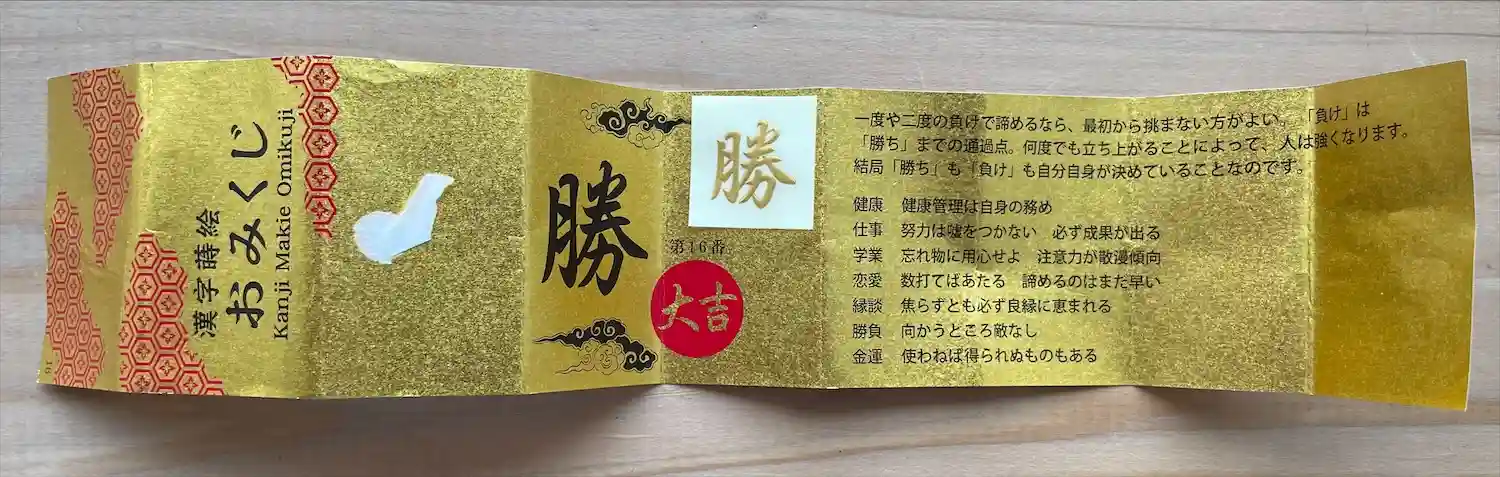 漢字蒔絵
おみくじ
Kanji Makie Omikuji
16
勝
勝
第16番
大吉
一度や二度の負けで諦めるなら、最初から挑まない方がよい。「負け」は
「勝ち」までの通過点。何度でも立ち上がることによって、人は強くなります。
結局「勝ち」も「負け」も自分自身が決めていることなのです。
健康　健康管理は自身の務め
仕事　努力は嘘をつかない　必ず成果が出る
学業　忘れ物に用心せよ　注意力が散漫傾向
恋愛　数打てばあたる　諦めるのはまだ早い
縁談　焦らずとも必ず良縁に恵まれる
勝負　向かうところ敵なし
金運　使わねば得られぬものもある